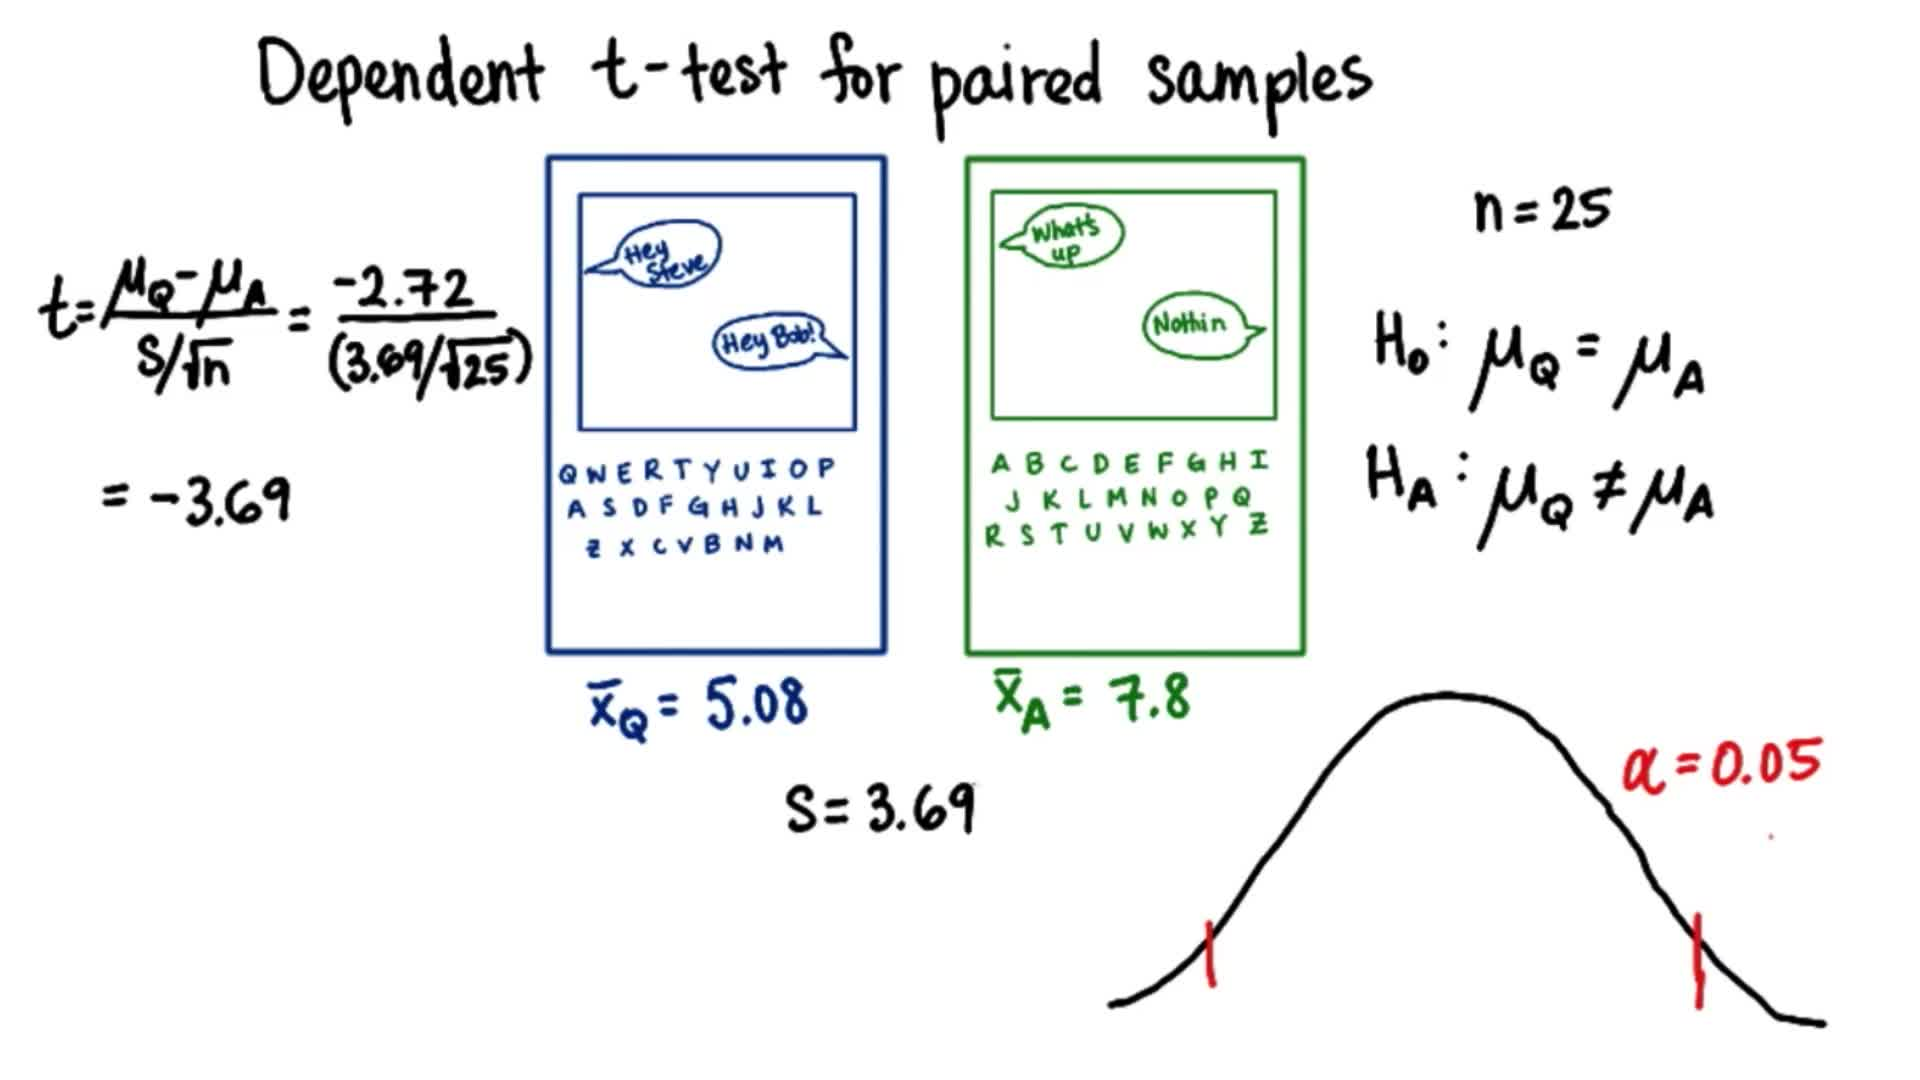 Dependent t-test for paired samples
t = μQ - μA / S/√n = -2.72 / (3.69/√25)
= -3.69
Hey Steve
Hey Bob!
Q W E R T Y U I O P
A S D F G H J K L
Z X C V B N M
x̄Q = 5.08
What's up
Nothin
A B C D E F G H I
J K L M N O P Q
R S T U V W X Y Z
x̄A = 7.8
S = 3.69
n = 25
H₀: μQ = μA
HA: μQ ≠ μA
α = 0.05